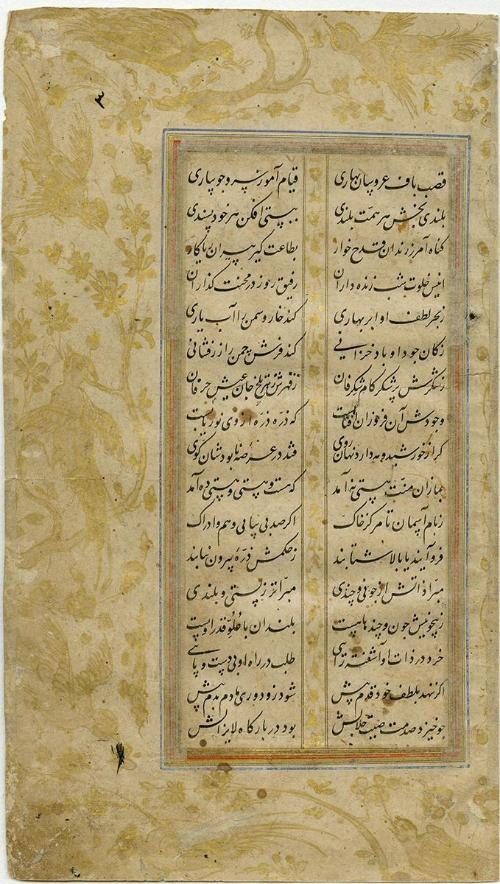 ۳
قصب باف عروسان بهاری قیام آموز سرو جویباری
بلندی بخش هر همت بلندی به پستی افکن هر خودپسندی
کناه آمرز رندان قدح خوار بطاعت کیر پیران ریاکار
انیس خلوت شب زنده داران رفیق روز در محنت کذاران
ز بحر لطف او ابر بهاری کند خار و سمن را آب یاری
ز کان جود او باد خزانی کند فرش چمن را زرفشانی
ز شکرش پر شکر کام شکرفان ز قهرش زهر تلخ جان عیش حرفان
وجودش آن فروزان آفتابست که ذره ذره از وی نور یابست
کر از خورشید و مه دارد نهان روی فتد در عرصه نابودشان کوی
بماران منت هستی نه آمد که هست و هستی و هستی ده آمد
ز بام آسمان تا مرکز خاک اکر صد پی بپای وهم و ادراک
فرود آیند یا بالا شتابند ز حکمش ذره بیرون نیابند
مبرا ذاتش از چونی و چندی مبراتر ز پستی و بلندی
ز بیچونیش چون و چندها پست بلندان با علو قدر او پست
خرد در ذات او آشفته رایی طلب در راه او بی دست و پایی
اکر ننهد بلطف خود قدم پیش شود ز دوری ما دم بدم بیش
چو خیزد صدمت صیت جلالش بود در بارکاه لایزالش